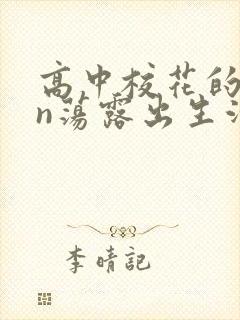 高中校花的
n荡露出生活
李晴記